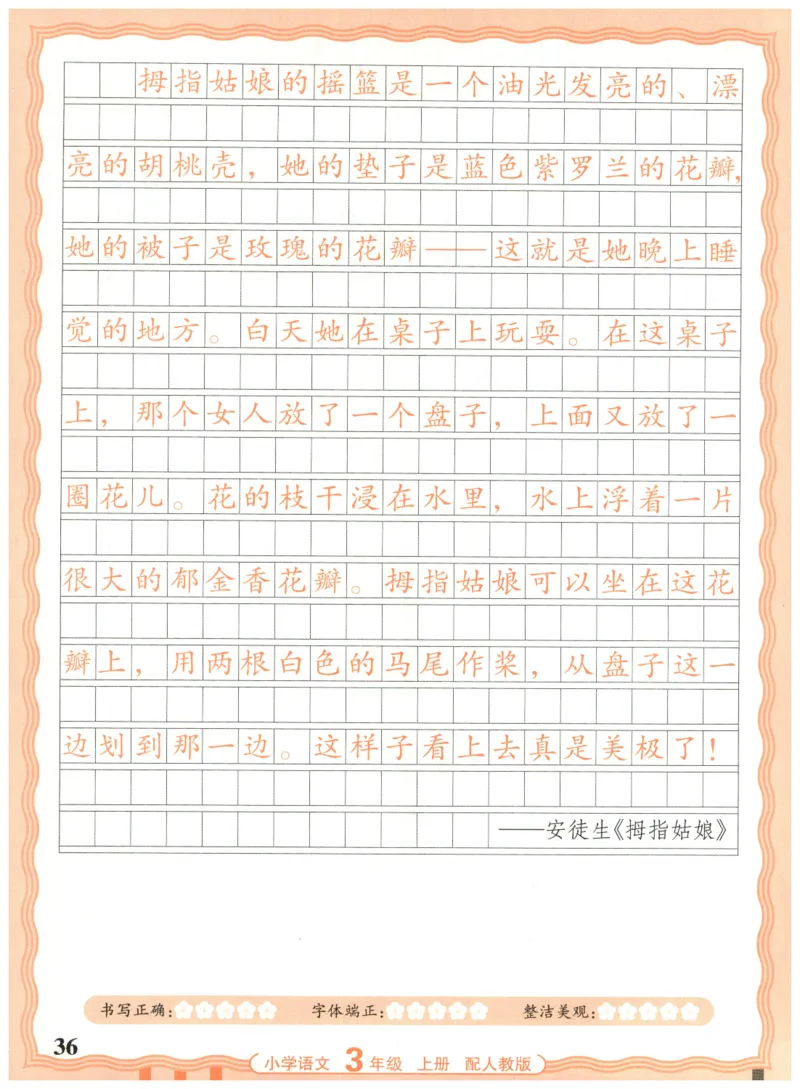 拇指姑娘的摇篮是一个油光发亮的、漂
亮的胡桃壳，她的垫子是蓝色紫罗兰的花瓣，
她的被子是玫瑰的花瓣——这就是她晚上睡
觉的地方。白天她在桌子上玩耍。在这桌子
上，那个女人放了一个盘子，上面又放了一
圈花儿。花的枝干浸在水里，水上浮着一片
很大的郁金香花瓣。拇指姑娘可以坐在这花
瓣上，用两根白色的马尾作桨，从盘子这一
边划到那一边。这样子看上去真是美极了！
——安徒生《拇指姑娘》
书写正确： 字体端正： 整洁美观：
36
小学语文 3年级 上册 配人教版